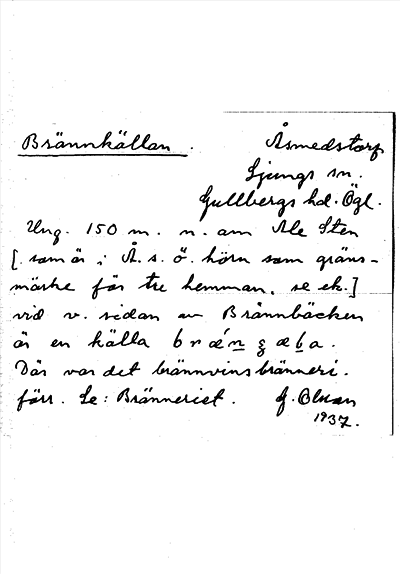 Brännkällan. Åsmedstorp
Ljungs sn.
Gullbergs hd. Ögl.
Ung. 150 m. n. om Ale Sten
[som är i Å. s. ö. hörn som gräns-
märke för tre hemman, se ek.]
vid v. sidan av Brännbäcken
är en källa
Där var det brännvinsbränneri.
förr. Se: Bränneriet. G.
1937.